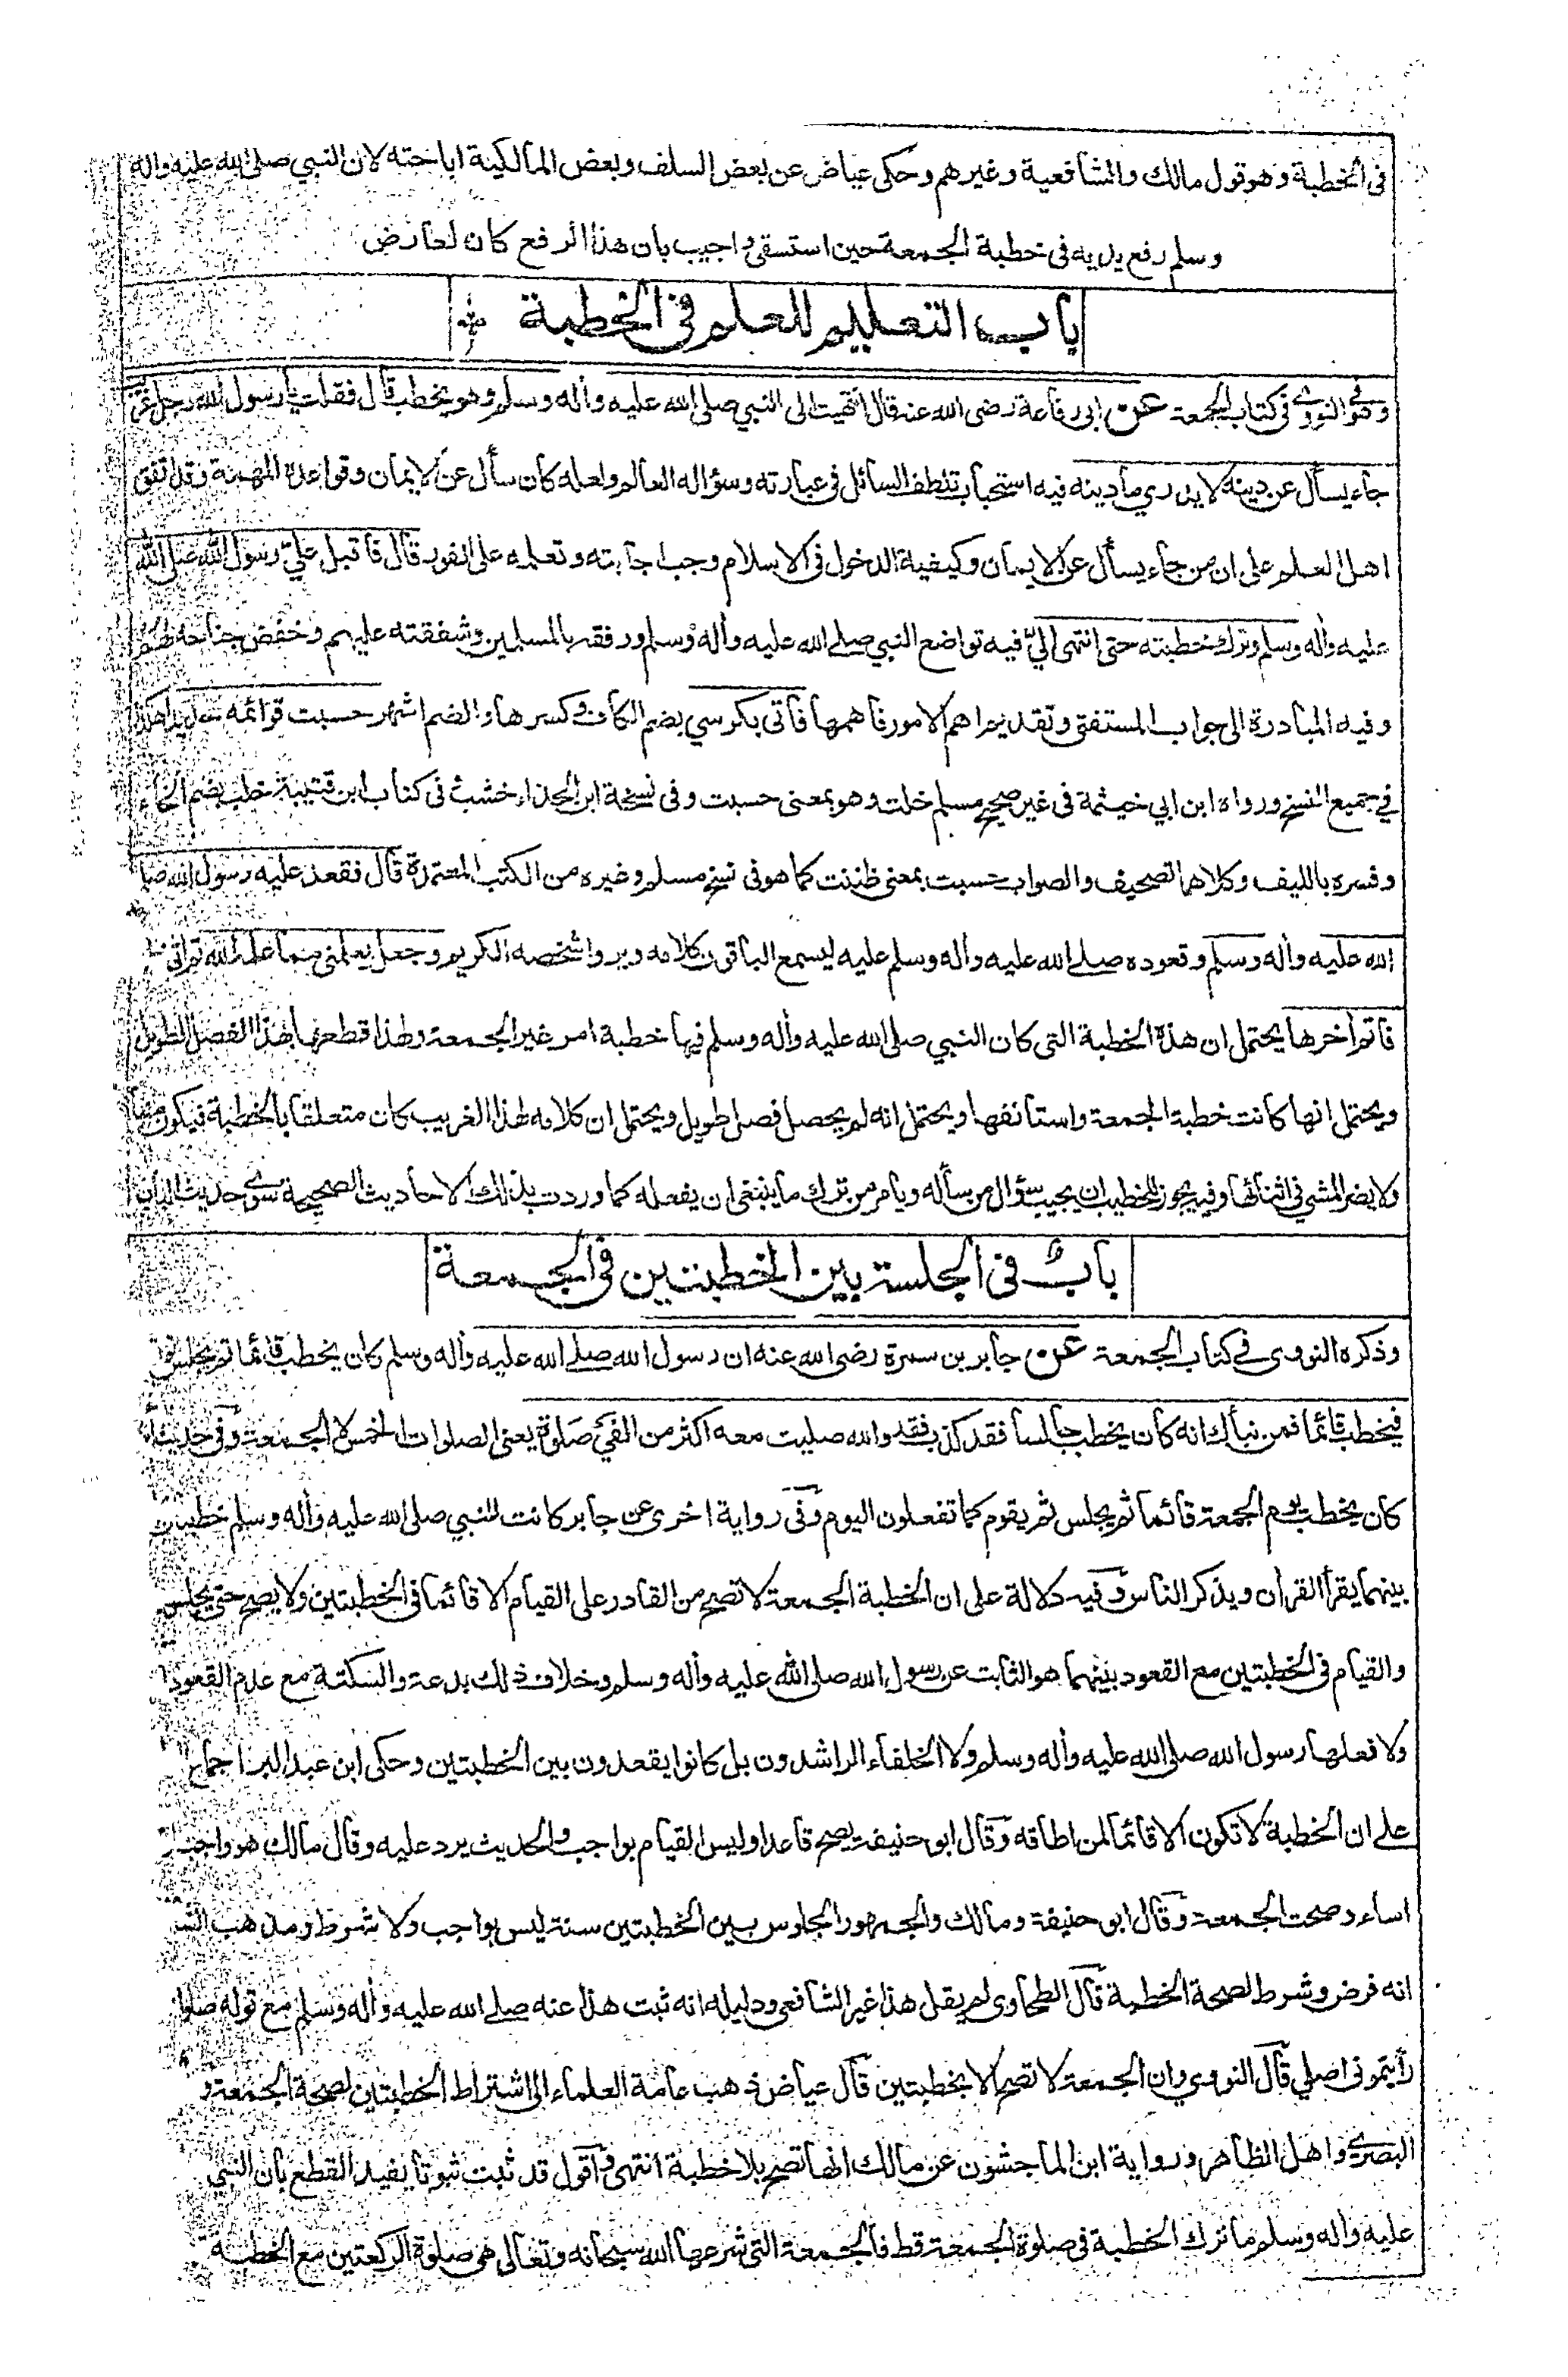 فى الخطبة وهو قول مالك والشافعية وغيرهم وحكى عياض عن بعض السلف وبعض المالكية اباحته لان النبي صلى الله عليه واله
وسلم رفع يديه فى خطبة الجمعة حين استسقى واجيب بان هذا الرفع كان لعارض
باب التعليم للعلم فى الخطبة
وهو فى النووى فى كتاب الجمعة عن ابى رفاعة رضى الله عنه قال انتهيت الى النبي صلى الله عليه وأله وسلم وهو يخطب قال فقلت يا رسول الله رجل غريب
جاء يسأل عن دينه لا يدري ما دينه فيه استحباب تلطف السائل فى عبارته وسؤاله العالم ولعله كان سأل عن الايمان وقواعده المهمة وقد اتفق
اهل العلم على ان من جاء يسأل عن الايمان وكيفية الدخول فى الاسلام وجب اجابته وتعلمه على الفور قال فاقبل عليّ رسول الله صلى الله
عليه وأله وسلم وترك خطبته حتى انتهى اليّ فيه تواضع النبي صلے الله عليه وأله وسلم ورفقه بالمسلمين وشفقته عليهم وخفض جناحه لهم
وفيه المبادرة الى جواب المستفتى وتقديم اهم الامور فاهمها فأتى بكرسي بضم الكاف وكسرها والضم اشهر حسبت قوائمه حديدا هكذا
في جميع النسخ ورواه ابن ابي خيثمة فى غير صحيح مسلم خلت وهو بمعنى حسبت وفى نسخة ابن الحذاء خشب فى كتاب ابن قتيبة خلب بضم الخاء
وفسره بالليف وكلاهما تصحيف والصواب حسبت بمعنى ظننت كما هو فى نسخ مسلم وغيره من الكتب المعتمدة قال فقعد عليه رسول الله صلى
الله عليه وأله وسلم وقعوده صلے الله عليه وأله وسلم عليه ليسمع الباقون كلامه ويروا شخصه الكريم وجعل يعلمنى مما علمه الله ثم اتى خطبته
فاتم أخرها يحتمل ان هذه الخطبة التى كان النبي صلى الله عليه وأله وسلم فيها خطبة امر غير الجمعة ولهذا قطعها بهذا الفصل الطويل
ويحتمل انها كانت خطبة الجمعة واستأنفها ويحتمل انه لم يحصل فصل طويل ويحتمل ان كلامه لهذا الغريب كان متعلقا بالخطبة فيكون منها
ولا يضر المشي فى اثنائها وفيه يجوز للخطيب ان يجيب سؤال من سأله ويامر من ترك ما ينبغى ان يفعله كما وردت بذلك الاحاديث الصحيحة سوى حديث الباب
بابٌ فى الجلسة بين الخطبتين فى الجمعة
وذكره النووى فى كتاب الجمعة عن جابر بن سمرة رضى الله عنه ان رسول الله صلے الله عليه وأله وسلم كان يخطب قائما ثم يجلس ثم يقوم
فيخطب قائما فمن نبأك انه كان يخطب جالسا فقد كذب فقد والله صليت معه اكثر من الفي صلوة يعنى الصلوات الخمس لا الجمعة وفى حديث
كان يخطب يوم الجمعة قائما ثم يجلس ثم يقوم كما تفعلون اليوم وفى رواية اخرى عن جابر كانت للنبي صلى الله عليه وأله وسلم خطبتان
بينهما يقرأ القرأن ويذكر الناس وفيه دلالة على ان الخطبة الجمعة لا تصح من القادر على القيام الا قائما فى الخطبتين ولا يصح حتى يجلس
والقيام فى الخطبتين مع القعود بينهما هو الثابت عن رسول الله صلى الله عليه وأله وسلم وخلاف ذلك بدعة والسكتة مع عدم القعود
ولا فعلها رسول الله صلى الله عليه وأله وسلم ولا الخلفاء الراشدون بل كانوا يقعدون بين الخطبتين وحكى ابن عبد البر اجماع
على ان الخطبة لا تكون الا قائما لمن اطاقه وقال ابو حنيفة يصح قاعدا وليس القيام بواجب والحديث يرد عليه وقال مالك هو واجب
اساء وصحت الجمعة وقال ابو حنيفة ومالك والجمهور الجلوس بين الخطبتين سنة ليس بواجب ولا شرط ومذهب
انه فرض وشرط لصحة الخطبة قال الطحاوى لم يقل هذا غير الشافعى ودليله انه ثبت هذا عنه صلے الله عليه وأله وسلم مع قوله صلوا
رأيتمونى اصلي قال النووي وان الجمعة لا تصح الا بخطبتين قال عياض ذهب عامة العلماء الى اشتراط الخطبتين لصحة الجمعة و
البصرى واهل الظاهر ورواية ابن الماجشون عن مالك انها تصح بلا خطبة انتهى واقول قد ثبت ثبوتا يفيد القطع بان النبى
عليه واله وسلم ما ترك الخطبة فى صلوة الجمعة قط فالجمعة التى شرعها الله سبحانه وتعالى هى صلوة الركعتين مع الخطبة